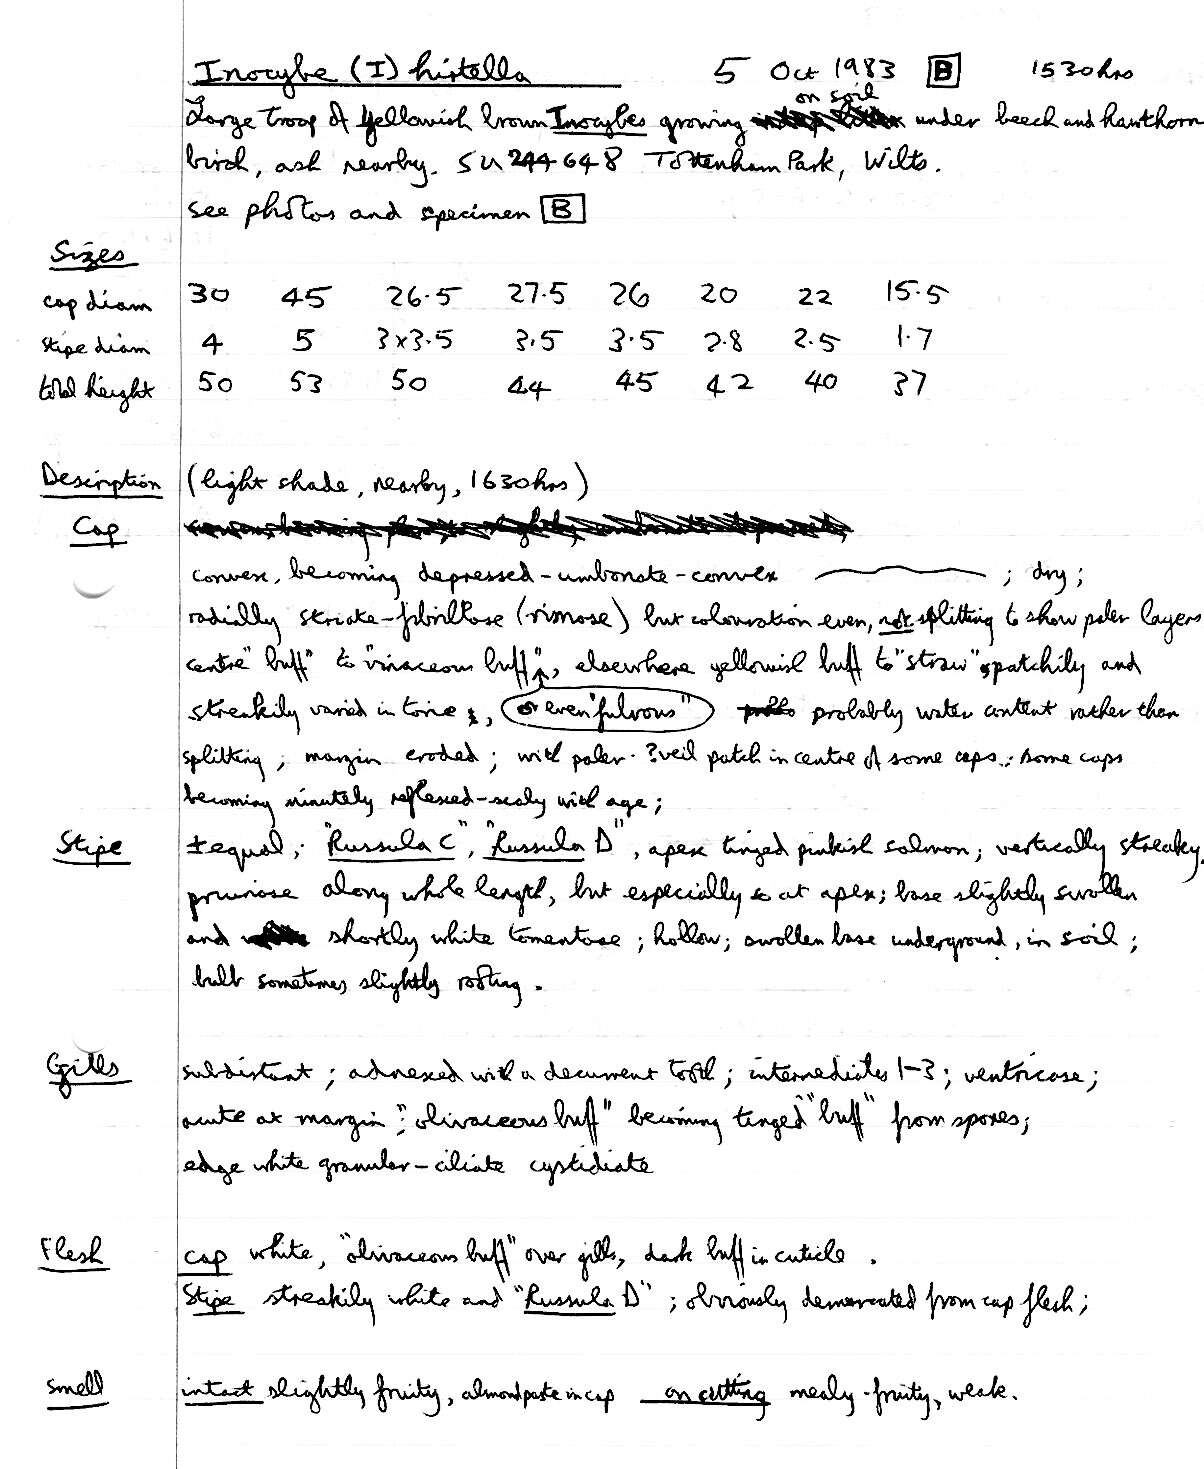 Inocybe (I) hirtella 5 Oct 1983 B 1530hrs
on soil
Large troop of yellowish brown Inocybes growing under beech and hawthorn
birch, ash nearby. SU 244 648 Tottenham Park, Wilts.
see photos and specimen B
Sizes
cap diam 30 45 26.5 27.5 26 20 22 15.5
stipe diam 4 5 3x3.5 3.5 3.5 2.8 2.5 1.7
total height 50 53 50 44 45 42 40 37
Description (light shade, nearby, 1630hrs)
Cap
convex, becoming depressed-umbonate-convex ; dry;
radially striate-fibrillose (rimose) but colouration even, not splitting to show paler layers
centre "buff" to "vinaceous buff", elsewhere yellowish buff to "straw" patchily and
streakily varied in tone, or even "fulvous" probably water content rather than
splitting; margin eroded; with paler ?veil patch in centre of some caps; some caps
becoming minutely reflexed-scaly with age;
Stipe ±equal; "Russula C", "Russula D", apex tinged pinkish salmon; vertically streaky,
pruinose along whole length, but especially at apex; base slightly swollen
and shortly white tomentose; hollow; swollen base underground, in soil;
bulb sometimes slightly rooting.
Gills subdistant; adnexed with a decurrent tooth; intermediates 1-3; ventricose;
acute at margin; "olivaceous buff" becoming tinged "buff" from spores;
edge white granular-ciliate cystidiate
Flesh cap white, "olivaceous buff" over gills, dark buff in cuticle.
Stipe streakily white and "Russula D"; obviously demarcated from cap flesh;
Smell intact slightly fruity, almond paste in cap on cutting mealy-fruity, weak.